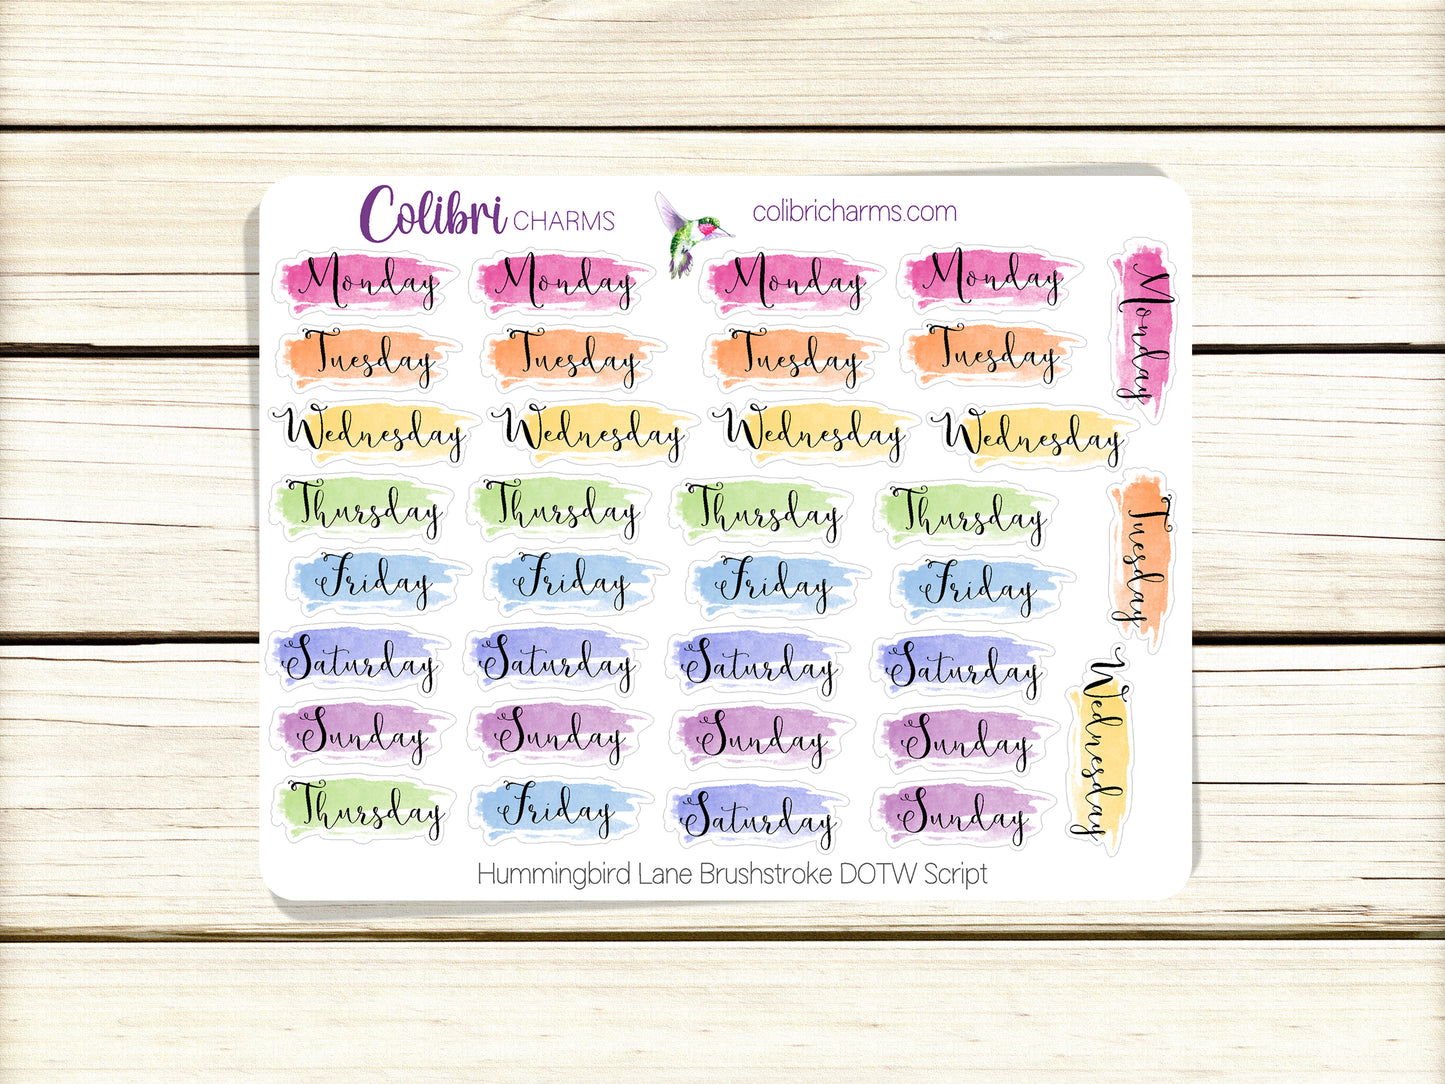 Colibri CHARMS
colibricharms.com
Monday Monday Monday Monday
Tuesday Tuesday Tuesday Tuesday
Wednesday Wednesday Wednesday Wednesday
Thursday Thursday Thursday Thursday
Friday Friday Friday Friday
Saturday Saturday Saturday Saturday
Sunday Sunday Sunday Sunday
Thursday Friday Saturday Sunday
Monday
Tuesday
Wednesday
Hummingbird Lane Brushstroke DOTW Script